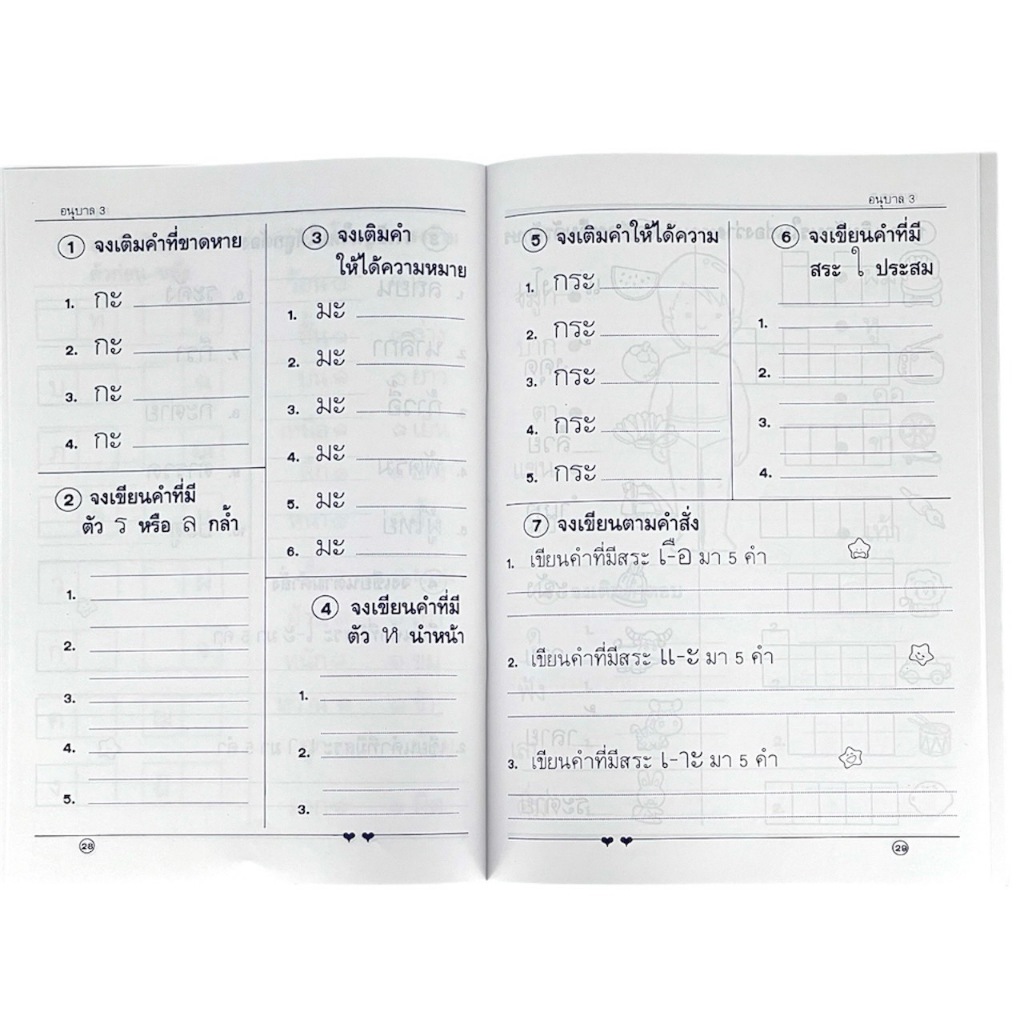 อนุบาล 3
1 จงเติมคำที่ขาดหาย
1. กะ
2. กะ
3. กะ
4. กะ
2 จงเขียนคำที่มี
ตัว ร หรือ ล กล้ำ
1.
2.
3.
4.
5.
3 จงเติมคำ
ให้ได้ความหมาย
1. มะ
2. มะ
3. มะ
4. มะ
5. มะ
6. มะ
4 จงเขียนคำที่มี
ตัว ห นำหน้า
1.
2.
3.
28
อนุบาล 3
5 จงเติมคำให้ได้ความ
1. กระ
2. กระ
3. กระ
4. กระ
5. กระ
6 จงเขียนคำที่มี
สระ ใ ประสม
1.
2.
3.
4.
7 จงเขียนตามคำสั่ง
1. เขียนคำที่มีสระ เ-ือ มา 5 คำ
2. เขียนคำที่มีสระ แ-ะ มา 5 คำ
3. เขียนคำที่มีสระ เ-าะ มา 5 คำ
29